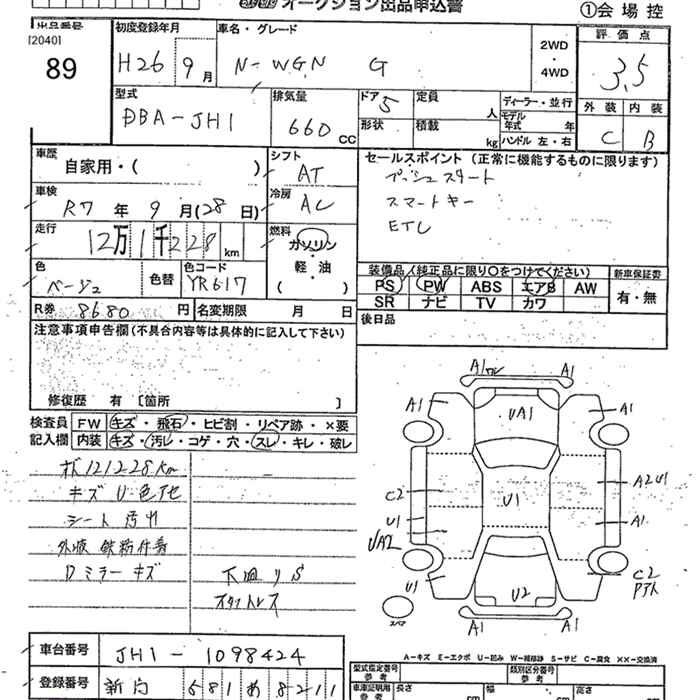 オークション出品申込書
①会場控
出品番号 初度登録年月 車名・グレード 評価点
[2040]
89 H26 9月 N-WGN G 2WD・4WD 3.5
型式 排気量 ドア 5 定員 人 ディーラー・並行 外装 内装
DBA-JH1 660 CC 形状 積載 kg モデル年式 年 C B
ハンドル 左・右
車歴 自家用・( ) シフト AT セールスポイント (正常に機能するものに限ります)
プッシュスタート
車検 R7年9月(28日) 冷房 AC スマートキー
ETC
走行 12万1千228km 燃料 ガソリン・軽油 ( )
装備品(純正品に限り○をつけてください) 新車保証書
色 ベージュ 色替 色コード YR617 PS PW ABS エアB AW 有・無
SR ナビ TV カワ
R券 8680円 名変期限 月 日 後日品
注意事項申告欄(不具合内容等は具体的に記入して下さい)
修復歴 有 [箇所 ]
検査員記入欄 FW キズ・飛石・ヒビ割・リペア跡・×要
内装 キズ・汚レ・コゲ・穴・スレ・キレ・破レ
121228km
キズ U 色アセ
シート汚れ
鉄粉付着
Dミラーキズ 下廻りS
スタットレス
A1 A1
A1 UA1 A1
C2 U1 A2U1
U1 A1
UA2
U1 C2
U2
スペア A1 A1
A-キズ E-エクボ U-凹み W-補修跡 S-サビ C-腐食 ××-交換済
車台番号 JH1-1098424
型式指定番号 参考 類別区分番号 参考
登録番号 581 あ 8211
車庫証明用 参考 長さ cm 幅 cm 高さ cm